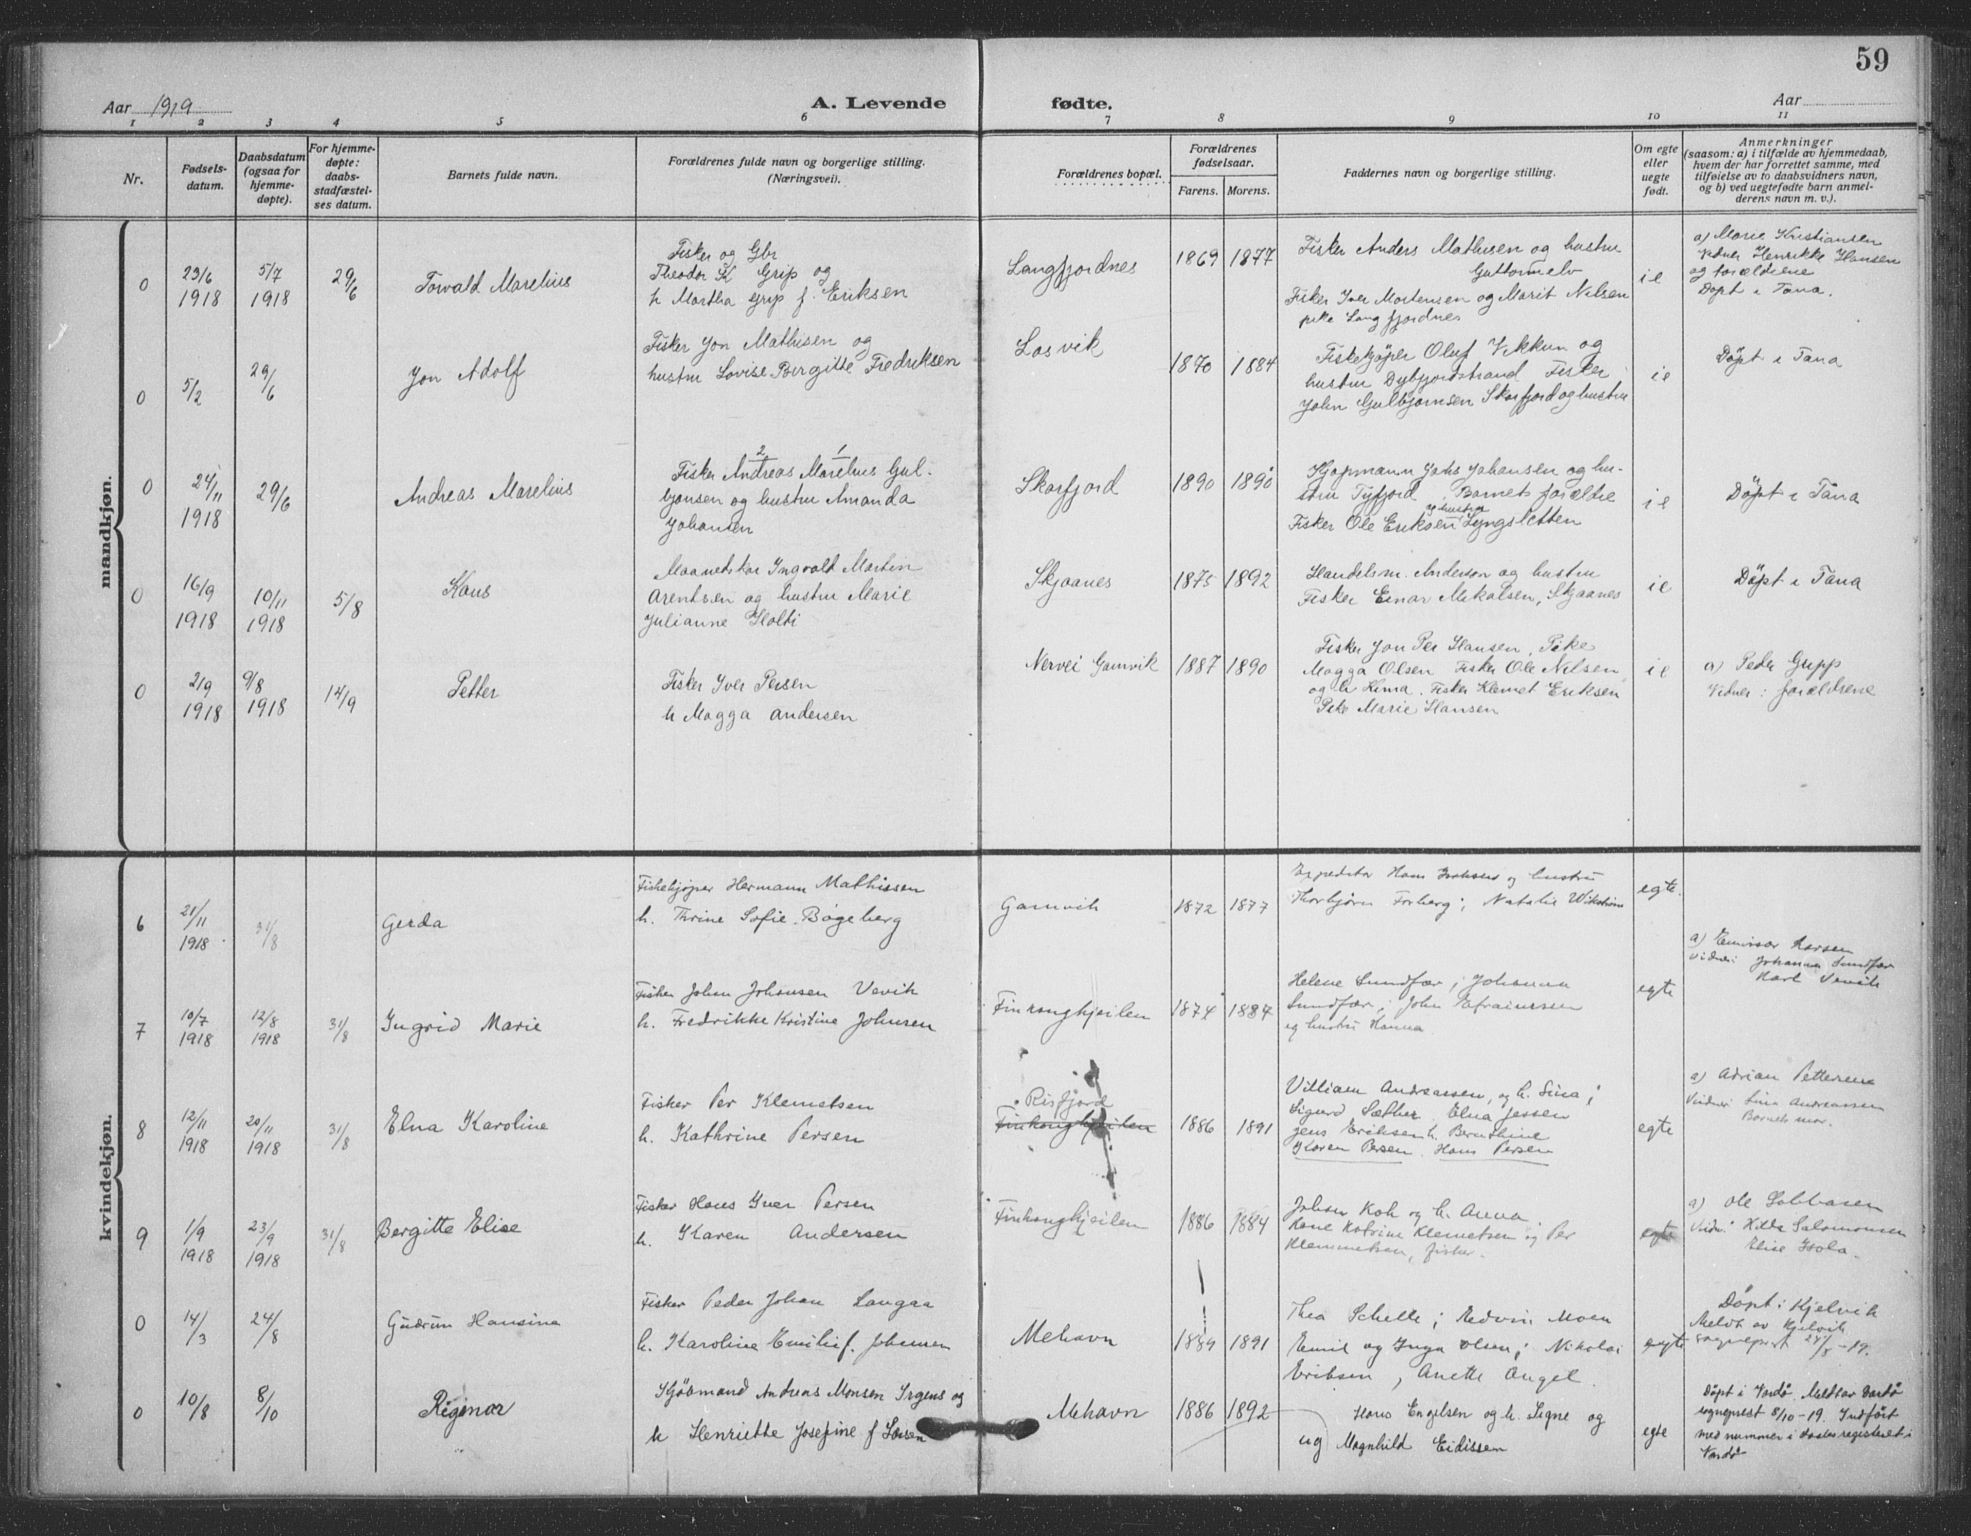 59
Aar 1919
A. Levende
fødte.
Aar
1 2 3 4 5 6 7 8 9 10 11
Nr.
Fødsels-
datum.
Daabsdatum
(ogsaa for
hjemme-
døpte).
For hjemme-
døpte:
daabs-
stadfæstel-
ses datum.
Barnets fulde navn.
Forældrenes fulde navn og borgerlige stilling.
(Næringsvei).
Forældrenes bopæl.
Forældrenes
fødselsaar.
Farens. Morens.
Faddernes navn og borgerlige stilling.
Om egte
eller
uegte
født.
Anmerkninger
(saasom: a) i tilfælde av hjemmedaab,
hvem der har forrettet samme, med
tilføielse av to daabsvidners navn,
og b) ved uegtefødte barn anmel-
derens navn m. v.).
mandkjøn.
0
23/6
1918
5/7
1918
29/6
Torvald Marelius
Fisker og Gbr
Theodor K Grip og
h Martha Grip f. Eriksen
Langfjordnes
1869 1877
Fisker Anders Mathisen og hustru
Guttormelv
Fisker Iver Mortensen og Marit Nilsen
pike Langfjordnes
ie
a) Marie Kristiansen
Vidner Henrikke Hansen
og forældrene
Døpt i Tana.
0
5/2
29/6
Jon Adolf
Fisker Jon Mathisen og
hustru Lovise Bergitte Fredriksen
Losvik
1870 1884
Fiskekjøper Oluf Vikkun og
hustru Dybfjordstrand Fisker
John Gulbjørnsen Skarfjord og hustru
ie
Døpt i Tana
0
24/11
1918
29/6
Andreas Marelius
2 1
Fisker Andreas Marelius Gul-
bjønsen og hustru Amanda
Johansen
Skarfjord
1890 1890
Kjøpmann Johs Johansen og hu-
stru Tyfjord Barnets forældre
og hustru
Fisker Ole Eriksen Lyngsletten
ie
Døpt i Tana
0
16/9
1918
10/11
1918
5/8
Kaus
Maanedskar Ingvald Martin
Arentsen og hustru Marie
Julianne Holti
Skjaanes
1875 1892
Handelsm. Anderson og hustru
Fisker Einar Mikalsen, Skjaanes
ie
Døpt i Tana
0
21/9
1918
9/8
1918
14/9
Petter
Fisker Iver Persen
h Magga Andersen
Nervei Gamvik
1887 1890
Fisker Jon Per Hansen, Pike
Magga Olsen Fisker Ole Nilsen
og h Kima. Fisker Klemet Eriksen
Pike Marie Hansen
ie
a) Peder Gupp
Vidner: forældrene
kvindekjøn.
6
21/11
1918
31/8
Gerda
Fiskekjøper Hermann Mathissen
h. Thrine Sofie Bøgeberg
Gamvik
1872 1877
Expeditør Hans Isaksen og hustru
Thorbjørn Forberg; Natalie Wikstrøm
egte.
7
10/7
1918
12/8
1918
31/8
Ingrid Marie
Fisker Johan Johansen Vevik
h. Fredrikke Kristine Johnsen
Finkongkjeilen
1874 1884
Helene Sundfær; Johanna
Sundfær; John Efraimssen
og hustru Hanna
egte
a) Emissær Larsen
Vidner: Johanna Sundfær
Karl Vevik
8
12/11
1918
20/11
1918
31/8
Elna Karoline
Fisker Per Klemetsen
h. Kathrine Persen
Risfjord
Finkongkjeilen
1886 1891
Villiam Andreassen, og h. Sina;
Sigurd Sæther, Elna Jessen
Jens Eriksen h. Bernthine
Karen Persen. Hans Persen
egte
a) Adrian Pettersen
Vidner: Sina Andreassen
Barnets mor.
9
1/9
1918
23/9
1918
31/8
Bergitte Elise
Fisker Hans Iver Persen
h. Karen Andersen
Finkongkjeilen
1886 1884
Johan Koh og h. Anna
Kone Katrine Klemetsen og Per
Klemmetsen, fisker.
egte
a) Ole Sabbasen
Vidn: Hilda Salomonsen
Elise Isola.
0
14/3
24/8
Gudrun Hansine
Fisker Peder Johan Langaa
h. Karoline Emilie f. Johnsen
Mehavn
1884 1891
Thea Schelle; Edvin Moen
Emil og Inga Olsen; Nikolai
Eriksen, Anette Angel.
egte
Døpt i Kjelvik
Meldt av Kjelvik
sogneprest 24/8-19.
0
10/8
8/10
Regimar
Kjøbmand Andreas Monsen Irgens og
h Henriette Josefine f Larsen
Mehavn
1886 1892
Hans Engelsen og h. Signe og
og Magnhild Eidissen
egte
Døpt i Vardø. Meldt av Vardø
sogneprest 8/10-19. Indført
med nummer i daabsregisteret i
Vardø